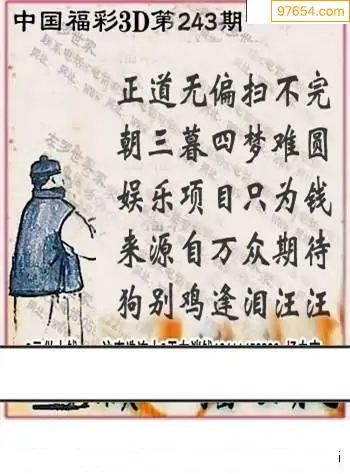 97654.com
中国福彩3D第243期
正道无偏扫不完
朝三暮四梦难圆
娱乐项目只为钱
来源自万众期待
狗别鸡逢泪汪汪
i